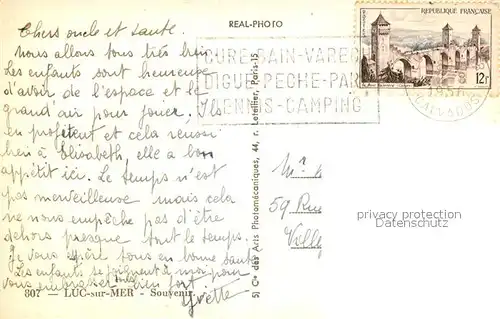 REAL-PHOTO
Chers oncle et tante.
Nous allons tous très bien
Les enfants sont heureux
d'avoir de l'espace et le
grand'air pour jouer. Ils
en profitent et cela réussi
bien à Elisabeth, elle a bon
appétit ici. Le temps n'est
pas merveilleuse mais cela
ne nous empêche pas d'être
dehors presque tout le temps.
Je vous espère tous en bonne santé
Les enfants se joignent à moi pour
vous embrasser bien fort
Yvette
807 - LUC-sur-MER - Souvenir
5) Cie des Arts Photomécaniques, 44, r. Letellier, Paris-15
CURE-BAIN-VARECH
DIGUE-PECHE-PAR
TENNIS-CAMPING
REPUBLIQUE FRANÇAISE
12F
CALVADOS
59 Rue
privacy protection
Datenschutz